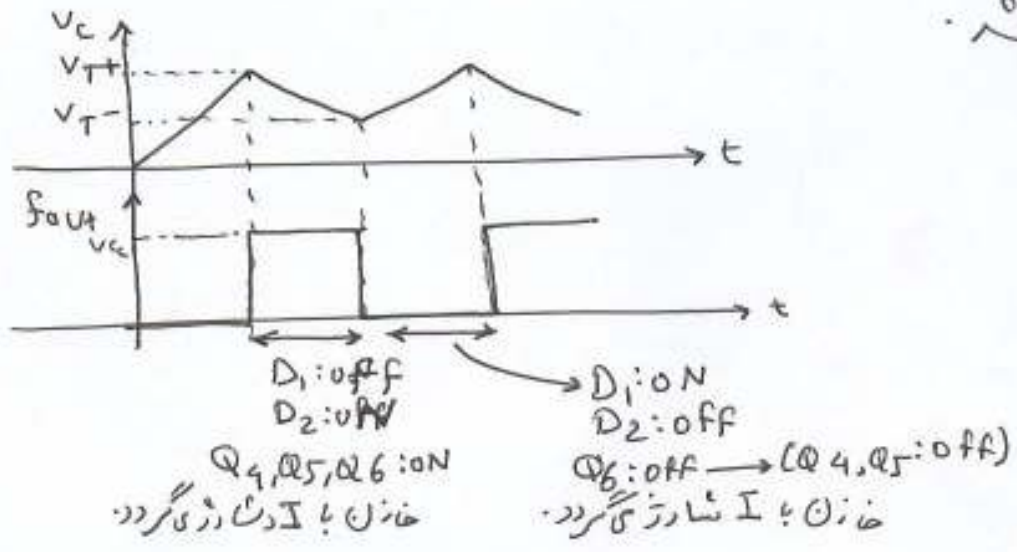 Vc
VT+
VT-
t
fout
Vcc
t
D1: off
D2: ON
Q4, Q5, Q6: ON
خازن با I دشارژ می‌گردد.
D1: ON
D2: off
Q6: off → (Q4, Q5: off)
خازن با I شارژ می‌گردد.